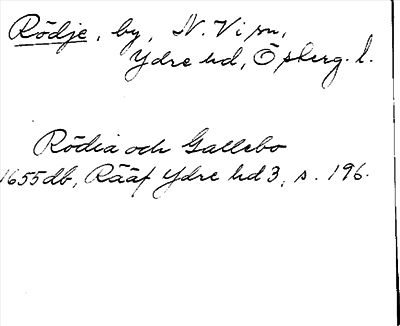 Rödje, by, N. Vi sn,
Ydre hd, Ösberg. l.
Rödia och Gallebo
1655 db, Rääf Ydre hd 3, s. 196.